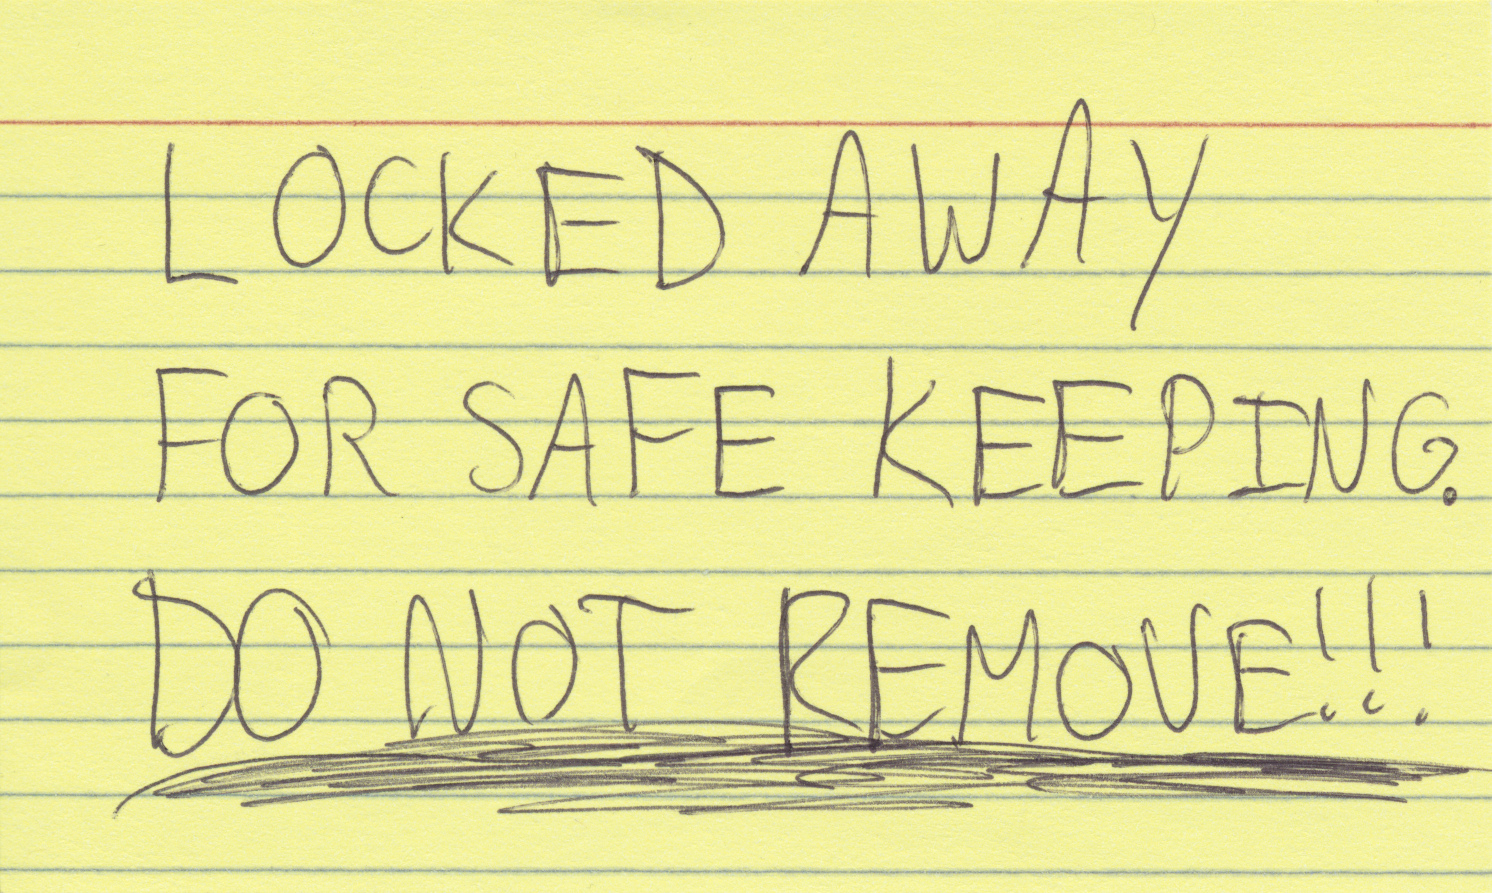 LOCKED AWAY
FOR SAFE KEEPING.
DO NOT REMOVE!!!